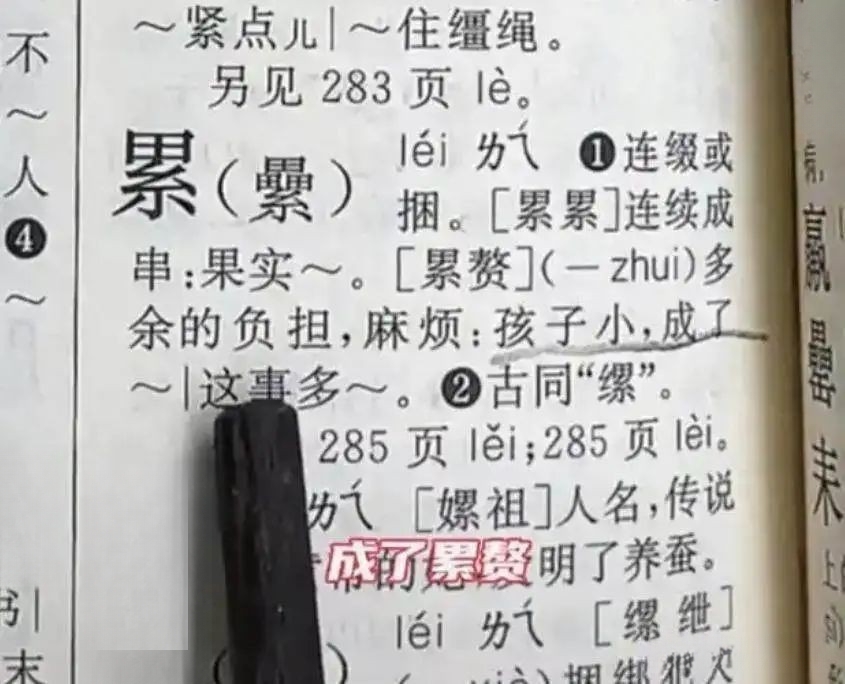 不
～
人
❹
～
书|
末
～紧点儿|～住缰绳。
另见 283 页 lè。
累(纍) léi ㄌㄟˊ ❶连缀或
捆。[累累]连续成
串:果实～。[累赘](－zhui)多
余的负担,麻烦:孩子小,成了
～|这事多～。❷古同“缧”。
285 页 lěi;285 页 lèi。
ㄌㄟˊ [嫘祖]人名,传说
明了养蚕。
成了累赘
léi ㄌㄟˊ [缧绁]
捆绑犯人
羸
罍
耒
上